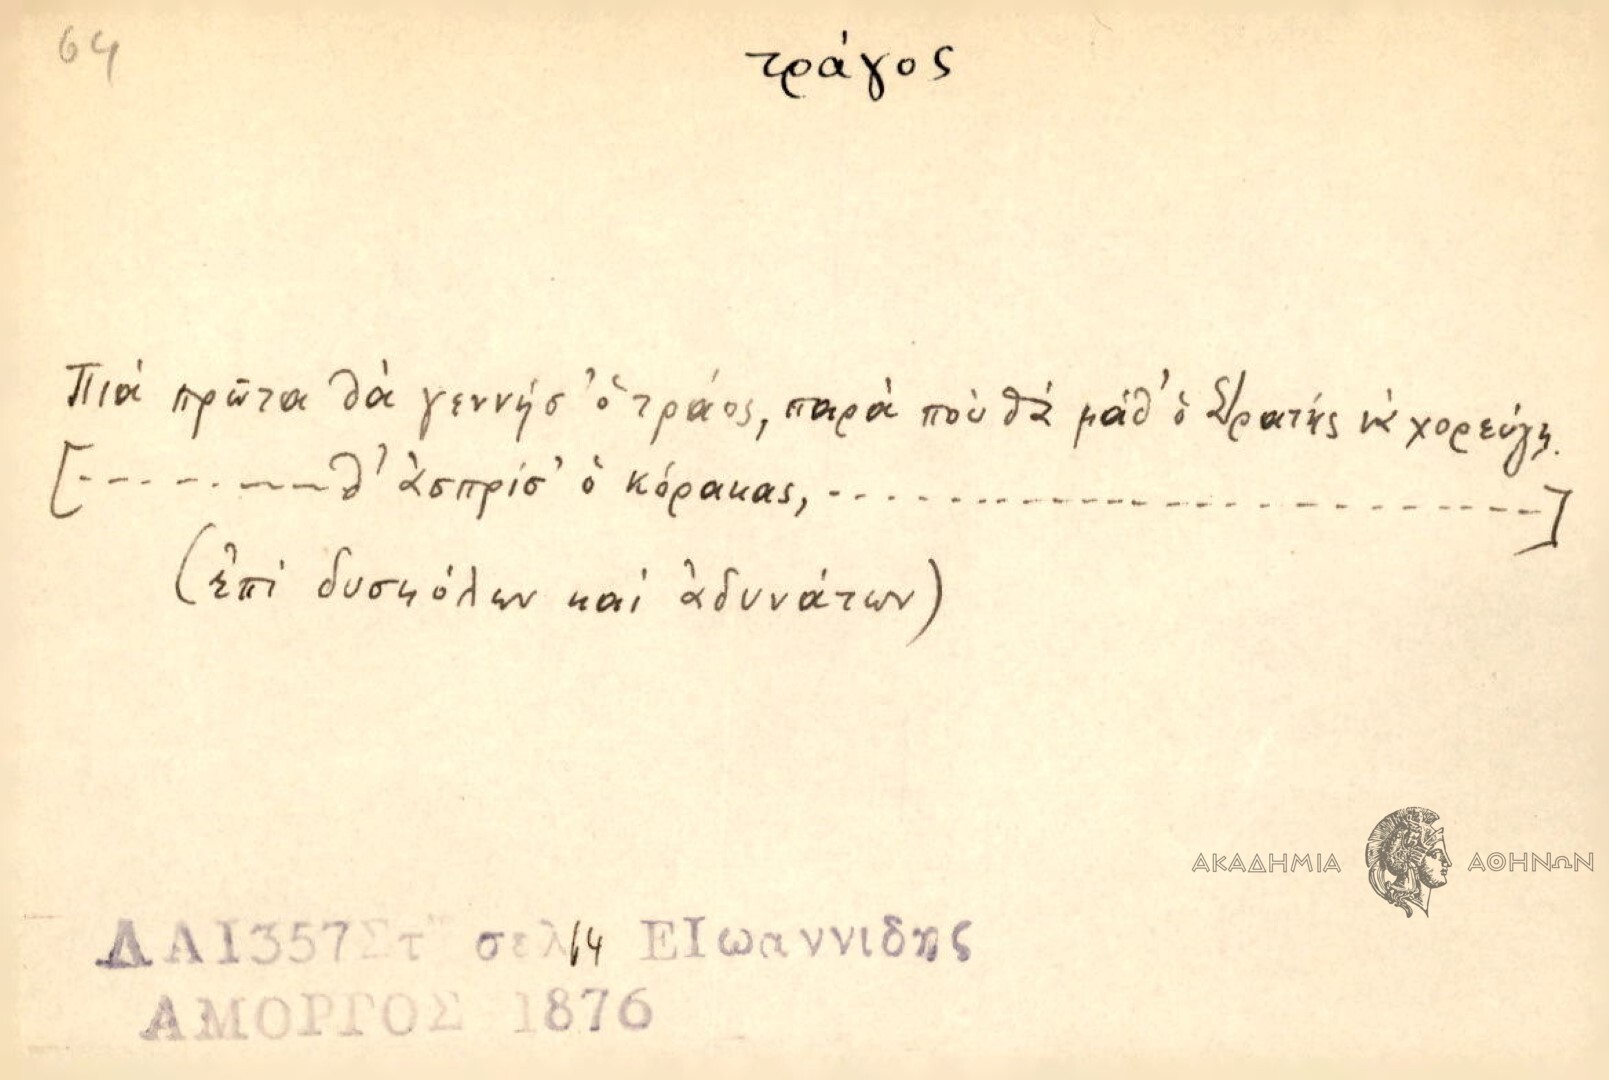 64
τράγος
Πιὰ πρῶτα θὰ γεννήσ' ὁ τράος, παρὰ ποὺ θὰ μάθ' ὁ Στρατής νὰ χορεύγῃ.
[- - - - - - - - - θ' ἀσπρίσ' ὁ κόρακας, - - - - - - - - - - - - - - - - - - - -]
(ἐπὶ δυσκόλων καὶ ἀδυνάτων)
ΑΚΑΔΗΜΙΑ ΑΘΗΝΩΝ
ΔΛΙ357Στ' σελ 64 ΕΙωαννιδης
ΑΜΟΡΓΟΣ 1876